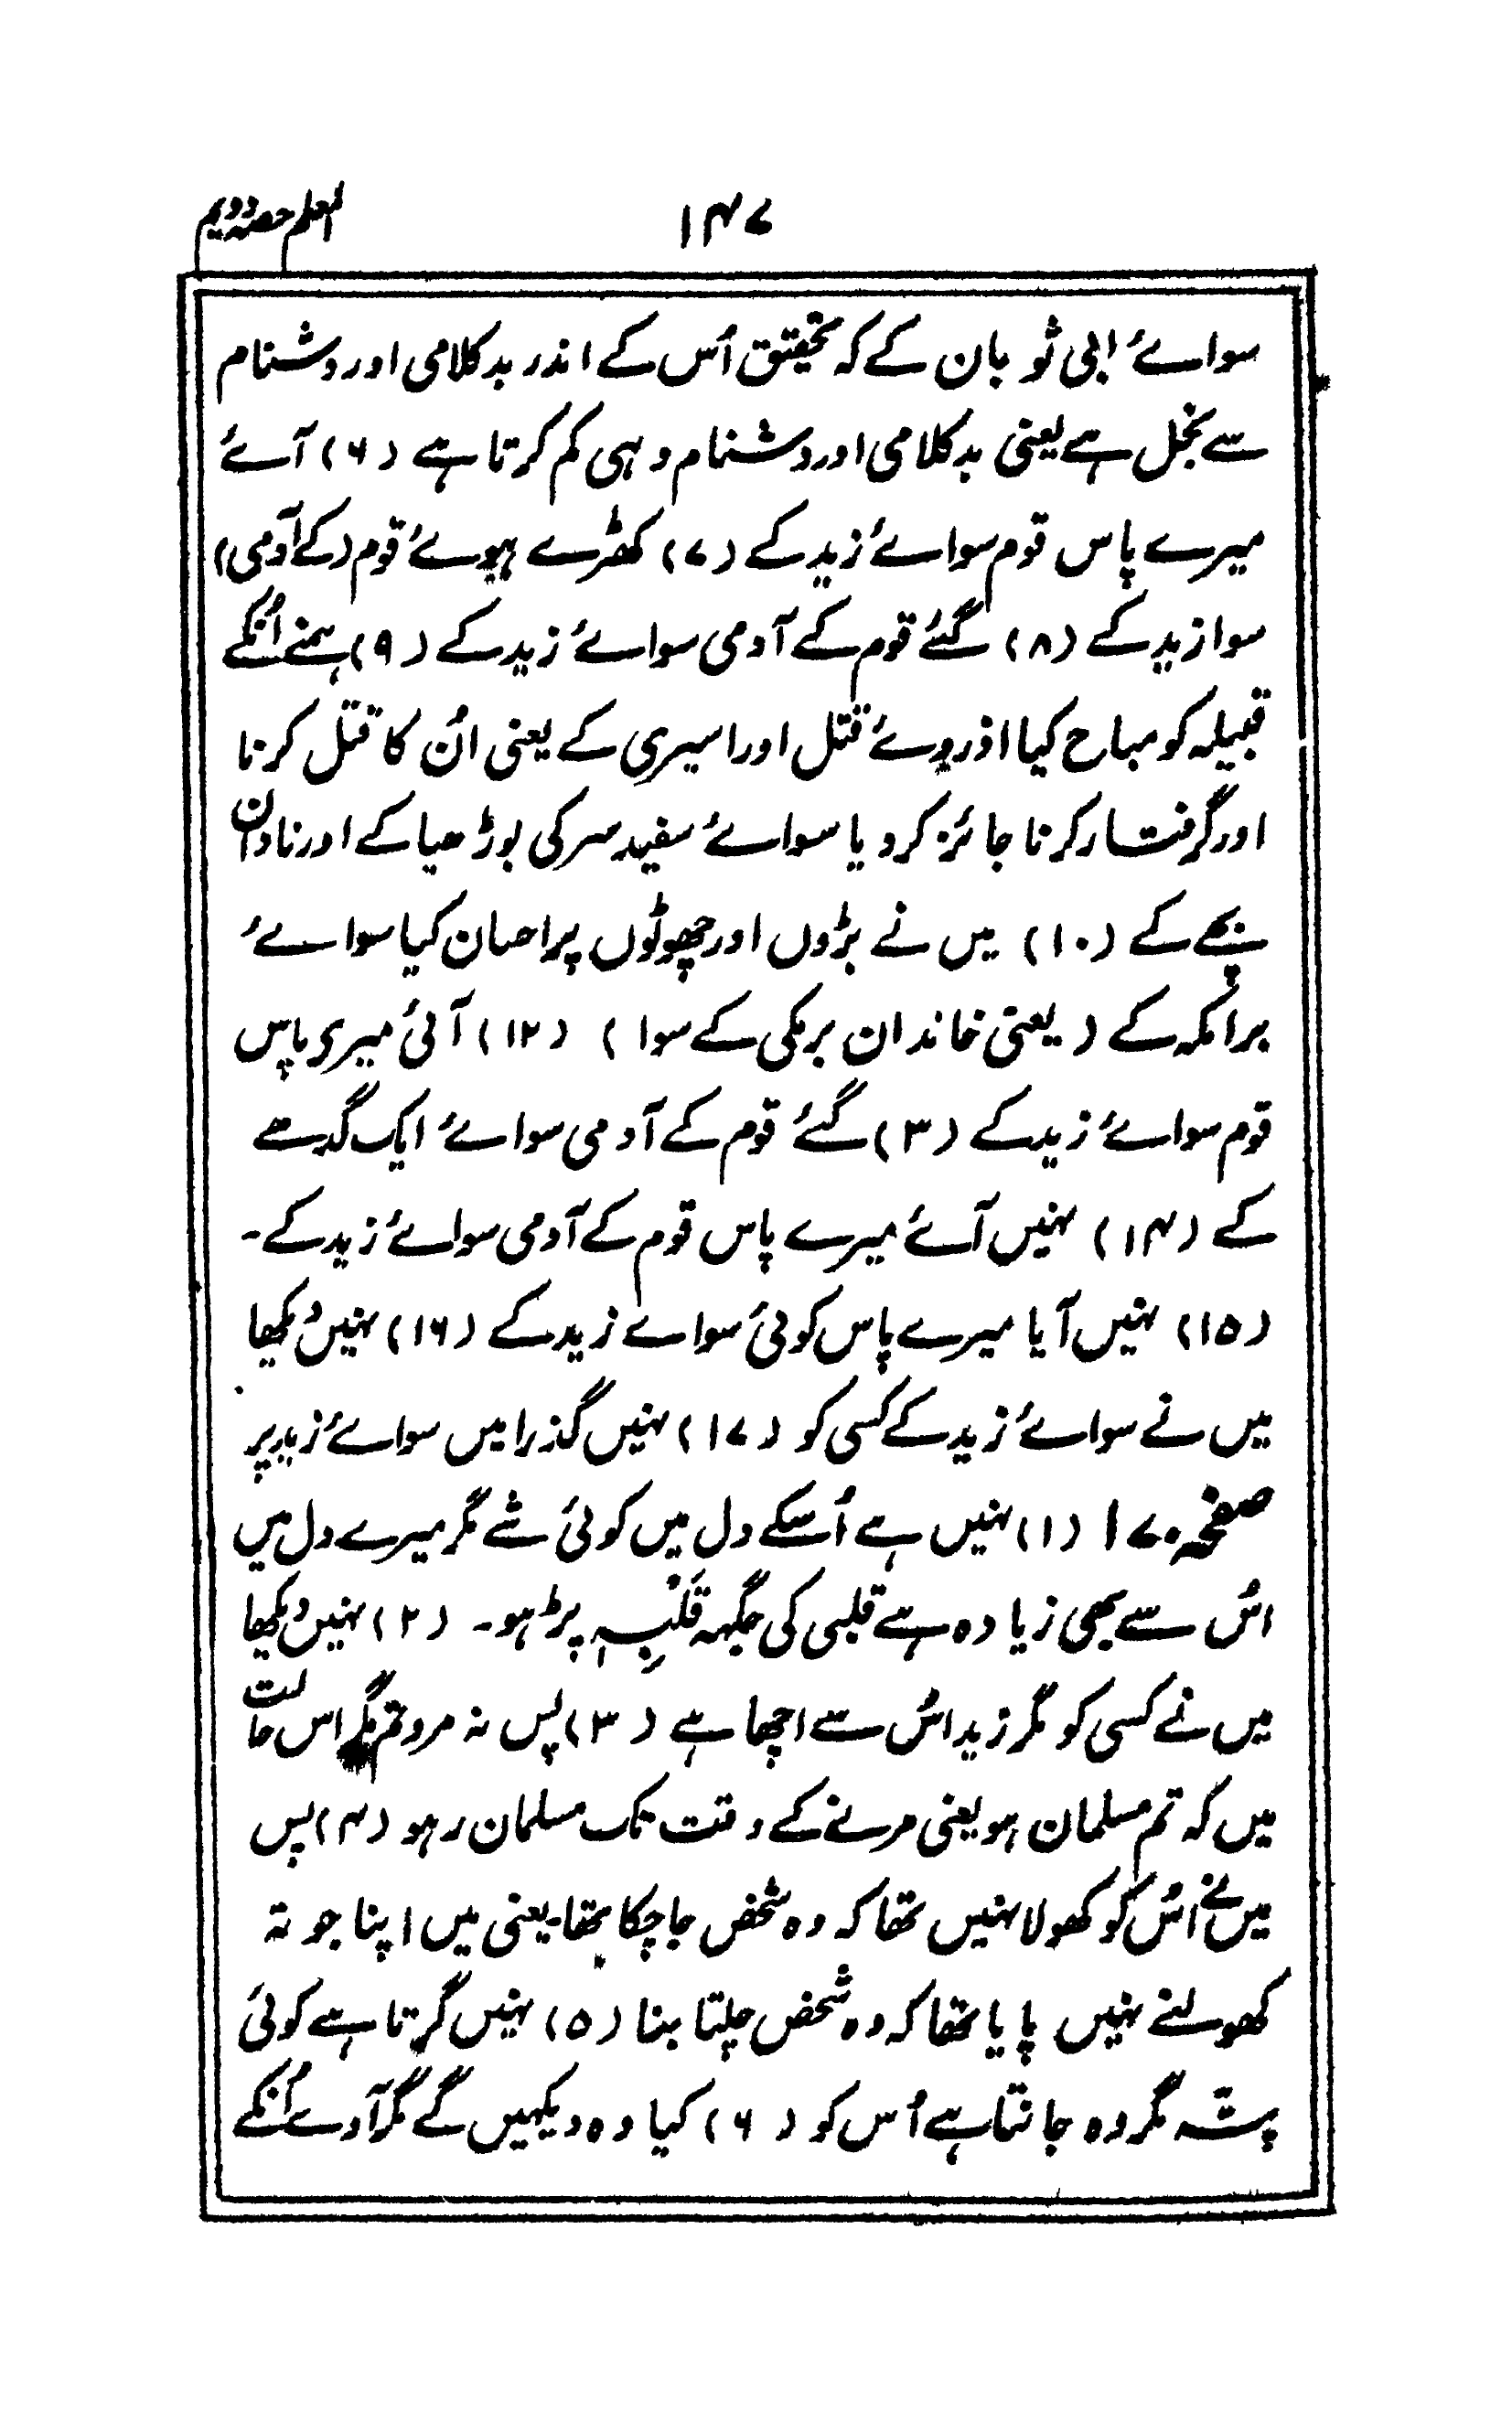 ۱۴۷
المعلم حصہ دویم
سوائے ابی ثوبان کے کہ تحقیق اُس کے اندر بدکلامی اور دشنام
سے بخل ہے یعنی بدکلامی اور دشنام وہی کم کرتا ہے (۶) آئے
میرے پاس قوم سوائے زید کے (۷) کھڑے ہوئے قوم (کے آدمی)
سوا زید کے (۸) گئے قوم کے آدمی سوائے زید کے (۹) ہمنے اُنکے
قبیلہ کو مباح کیا اذروئے قتل اور اسیری کے یعنی اُن کا قتل کرنا
اور گرفتار کرنا جائز کر دیا سوائے سفید سر کی بوڑھیا کے اور نادان
بچے کے (۱۰) میں نے بڑوں اور چھوٹوں پر احسان کیا سوائے
برامکہ کے (یعنی خاندان برمکی کے سوا) (۱۲) آئی میری پاس
قوم سوائے زید کے (۳) گئے قوم کے آدمی سوائے ایک گدھے
کے (۱۴) نہیں آئے میرے پاس قوم کے آدمی سوائے زید کے۔
(۱۵) نہیں آیا میرے پاس کوئی سواے زید کے (۱۶) نہیں دیکھا
میں نے سوائے زید کے کسی کو (۱۷) نہیں گذرا میں سوائے زید پر
صفحہ ۱۷۰ (۱) نہیں ہے اُسکے دل میں کوئی شے مگر میرے دل میں
اُس سے بھی زیادہ ہے قلبی کی جگہہ قَلْبِہٖ پڑہو۔ (۲) نہیں دیکھا
میں نے کسی کو مگر زید اُس سے اچھا ہے (۳) پس نہ مرو تم مگر اس حالت
میں کہ تم مسلمان ہو یعنی مرنے کے وقت تک مسلمان رہو (۴) پس
میں نے اُس کو کھولا نہیں تھا کہ وہ شخص جا چکا تھا۔ یعنی میں اپنا جوتہ
کھولنے نہیں پایا تھا کہ وہ شخص چلتا بنا (۵) نہیں گرتا ہے کوئی
پتہ مگر وہ جانتا ہے اُس کو (۶) کیا وہ دیکہیں گے مگر آوے اُنکے